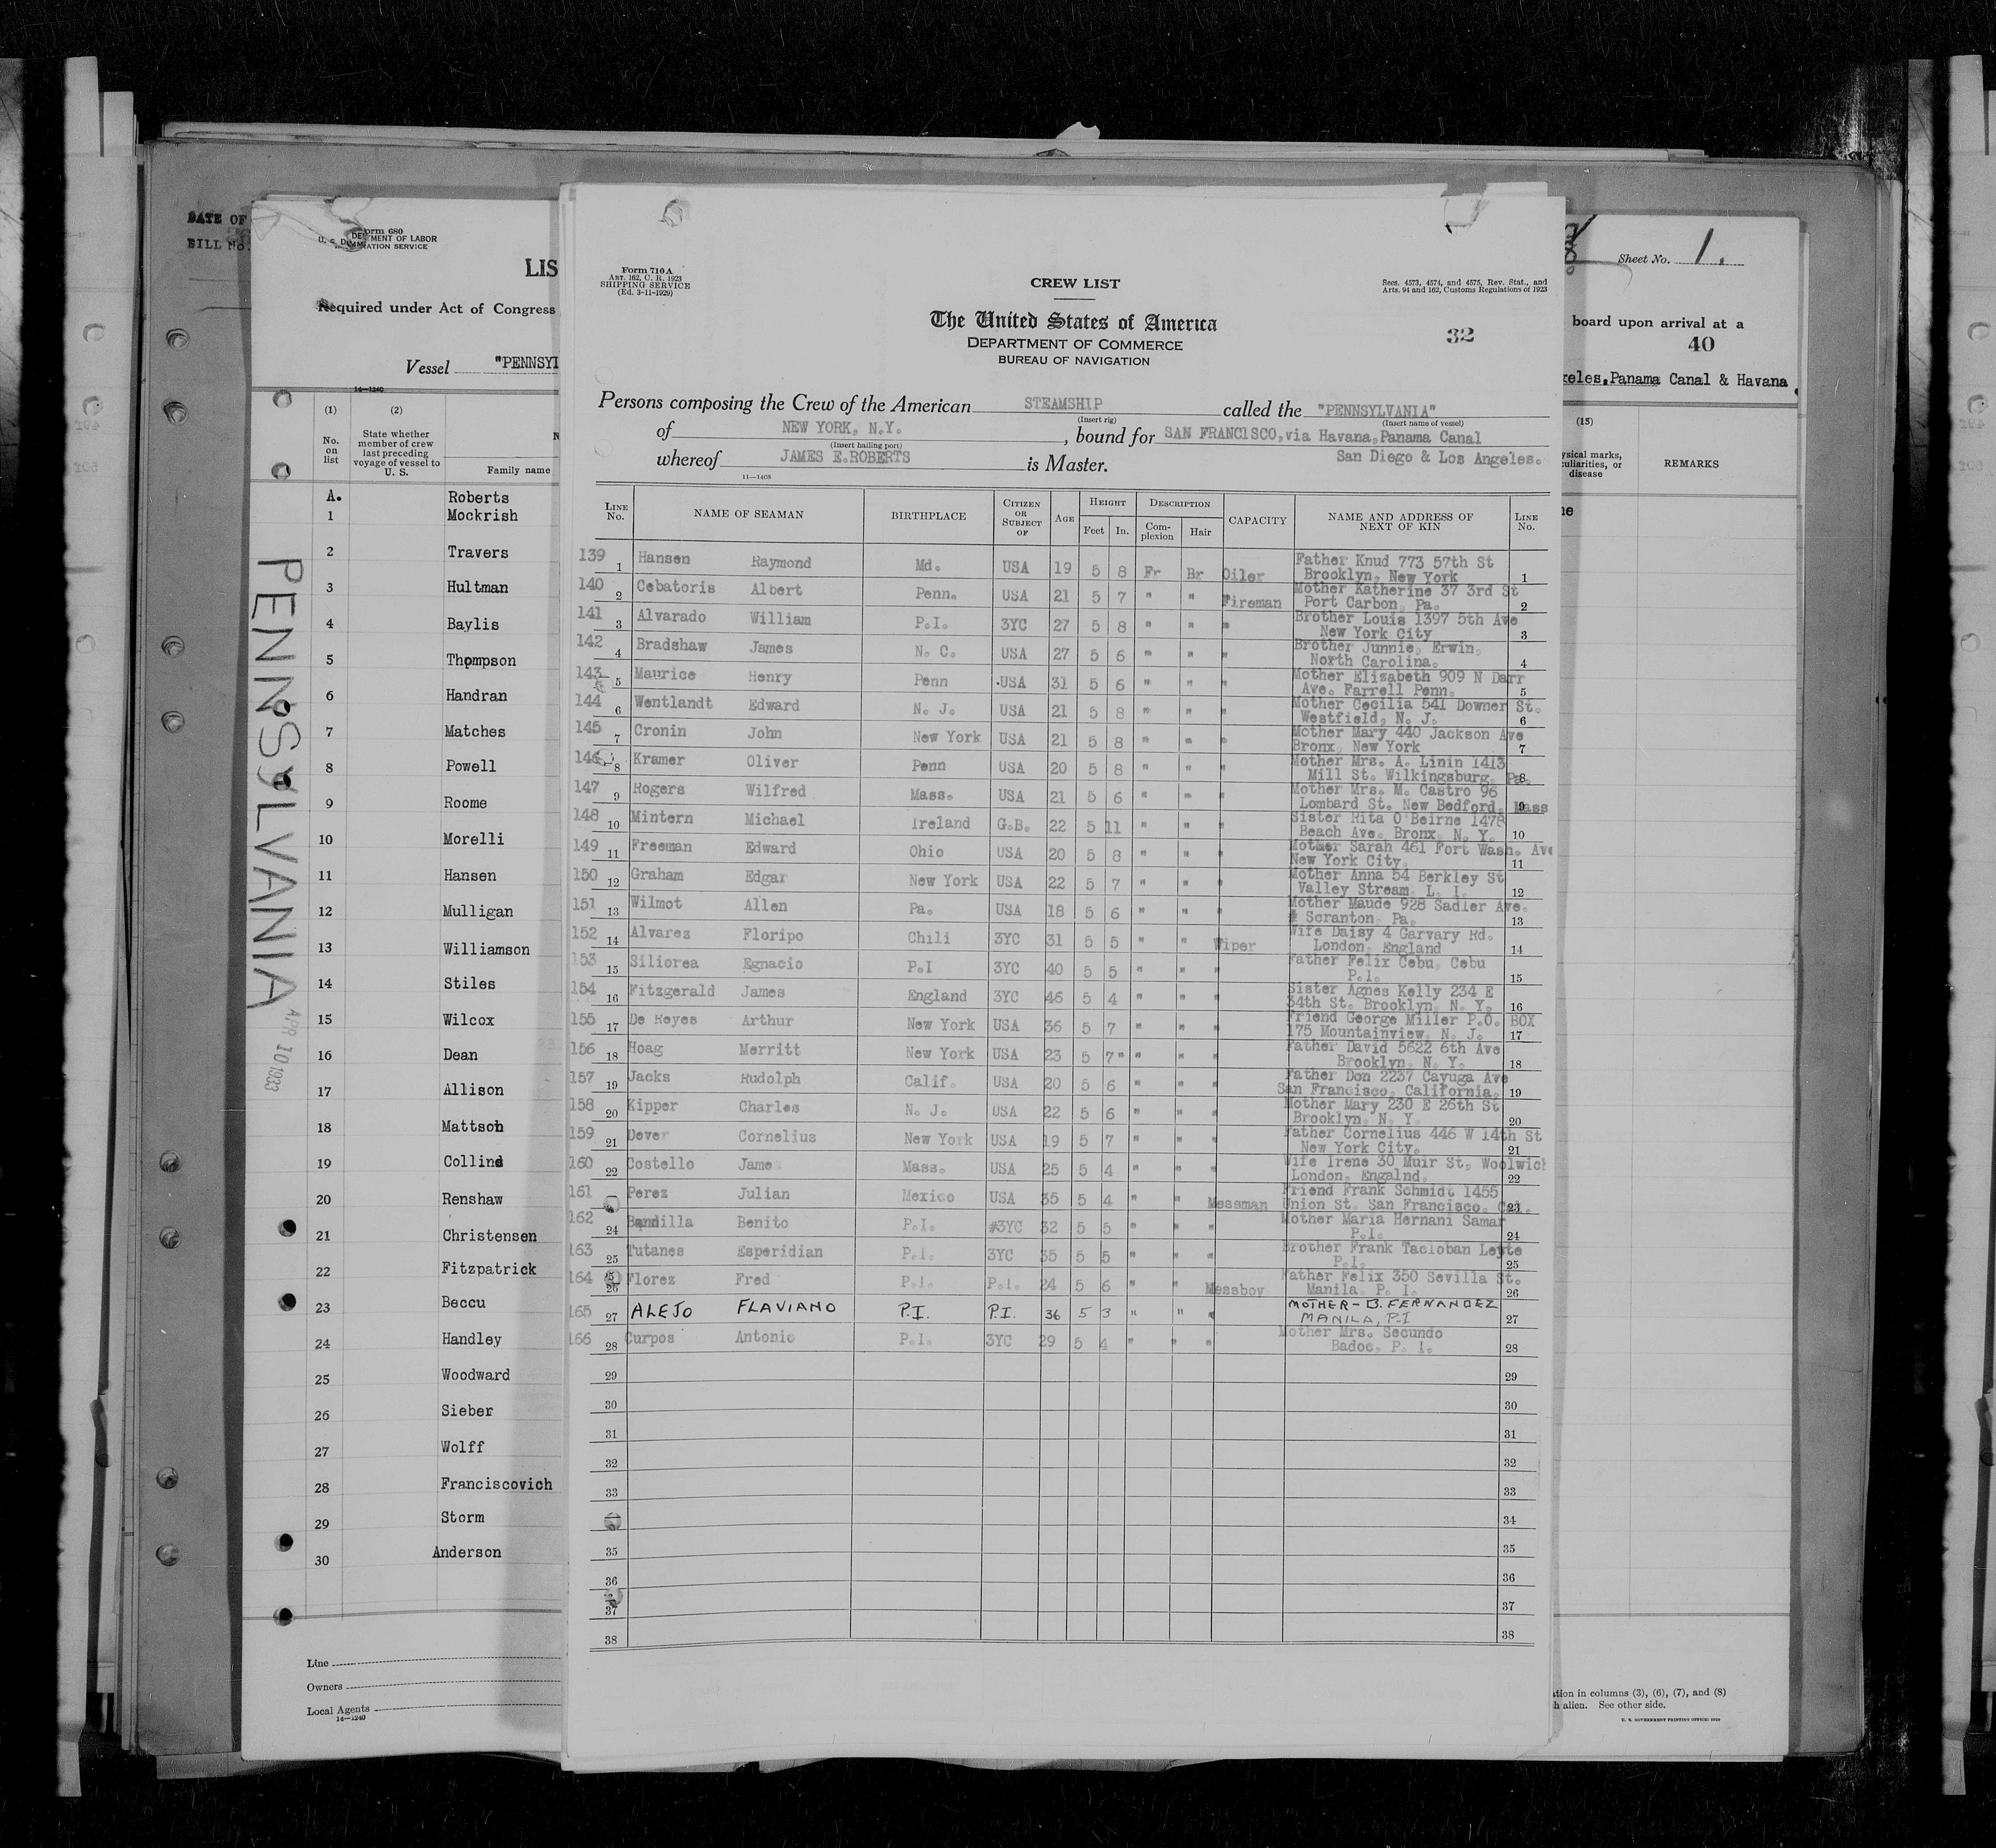 DATE OF
BILL No.
Form 680
U. S. DEPARTMENT OF LABOR
IMMIGRATION SERVICE
LIS
Required under Act of Congress
Vessel "PENNSYL
14—1240
(1) (2)
No. on list
State whether member of crew last preceding voyage of vessel to U. S.
Family name
A. Roberts
1 Mockrish
2 Travers
3 Hultman
4 Baylis
5 Thompson
6 Handran
7 Matches
8 Powell
9 Roome
10 Morelli
11 Hansen
12 Mulligan
13 Williamson
14 Stiles
15 Wilcox
16 Dean
17 Allison
18 Mattson
19 Collins
20 Renshaw
21 Christensen
22 Fitzpatrick
23 Beccu
24 Handley
25 Woodward
26 Sieber
27 Wolff
28 Franciscovich
29 Storm
30 Anderson
Line
Owners
Local Agents
14—1240
PENNSYLVANIA
APR 10 1933
Form 710A
ART. 162, C. R. 1923
SHIPPING SERVICE
(Ed. 3-11-1929)
CREW LIST
Secs. 4573, 4574, and 4575, Rev. Stat., and
Arts. 94 and 162, Customs Regulations of 1923
The United States of America
DEPARTMENT OF COMMERCE
BUREAU OF NAVIGATION
32
Persons composing the Crew of the American STEAMSHIP called the "PENNSYLVANIA"
(Insert rig) (Insert name of vessel)
of NEW YORK, N.Y. , bound for SAN FRANCISCO,via Havana,Panama Canal
(Insert hailing port)
whereof JAMES E.ROBERTS is Master. San Diego & Los Angeles.
11—1408
LINE No. NAME OF SEAMAN BIRTHPLACE CITIZEN OR SUBJECT OF AGE HEIGHT Feet In. DESCRIPTION Complexion Hair CAPACITY NAME AND ADDRESS OF NEXT OF KIN LINE No.
139 1 Hansen Raymond Md. USA 19 5 8 Fr Br Oiler Father Knud 773 57th St
Brooklyn, New York 1
140 2 Cebatoris Albert Penn. USA 21 5 7 " " Fireman Mother Katherine 37 3rd St
Port Carbon, Pa. 2
141 3 Alvarado William P.I. 3YC 27 5 8 " " " Brother Louis 1397 5th Ave
New York City 3
142 4 Bradshaw James N. C. USA 27 5 6 " " " Brother Junnie, Erwin,
North Carolina. 4
143 5 Maurice Henry Penn USA 31 5 6 " " " Mother Elizabeth 909 N Darr
Ave. Farrell Penn. 5
144 6 Wentlandt Edward N. J. USA 21 5 8 " " " Mother Cecilia 541 Downer St.
Westfield, N. J. 6
145 7 Cronin John New York USA 21 5 8 " " " Mother Mary 440 Jackson Ave
Bronx, New York 7
146 8 Kramer Oliver Penn USA 20 5 8 " " " Mother Mrs. A. Linin 1413
Mill St. Wilkingsburg, Pa. 8
147 9 Rogers Wilfred Mass. USA 21 5 6 " " " Mother Mrs. M. Castro 96
Lombard St. New Bedford, Mass 9
148 10 Mintern Michael Ireland G.B. 22 5 11 " " " Sister Rita O'Beirne 1478
Beach Ave. Bronx, N. Y. 10
149 11 Freeman Edward Ohio USA 20 5 8 " " " Mother Sarah 461 Fort Wash. Ave
New York City. 11
150 12 Graham Edgar New York USA 22 5 7 " " " Mother Anna 54 Berkley St
Valley Stream, L. I. 12
151 13 Wilmot Allen Pa. USA 18 5 6 " " " Mother Maude 928 Sadler Ave.
Scranton, Pa. 13
152 14 Alvarez Floripo Chili 3YC 31 5 5 " " Wiper Wife Daisy 4 Garvary Rd.
London, England 14
153 15 Siliorea Egnacio P.I 3YC 40 5 5 " " " Father Felix Cebu, Cebu
P.I. 15
154 16 Fitzgerald James England 3YC 46 5 4 " " " Sister Agnes Kelly 234 E
34th St. Brooklyn, N. Y. 16
155 17 De Reyes Arthur New York USA 36 5 7 " " " Friend George Miller P.O. BOX
175 Mountainview, N. J. 17
156 18 Hoag Merritt New York USA 23 5 7" " " " Father David 5622 6th Ave
Brooklyn, N. Y. 18
157 19 Jacks Rudolph Calif. USA 20 5 6 " " " Father Don 2237 Cayuga Ave
San Francisco, California. 19
158 20 Kipper Charles N. J. USA 22 5 6 " " " Mother Mary 230 E 26th St
Brooklyn, N. Y. 20
159 21 Dever Cornelius New York USA 19 5 7 " " " Father Cornelius 446 W 14th St
New York City. 21
160 22 Costello Jame Mass. USA 25 5 4 " " " Wife Irene 30 Muir St. Woolwich
London, Engalnd. 22
161 Perez Julian Mexico USA 35 5 4 " " Messman Friend Frank Schmidt 1455
Union St. San Francisco, Cal. 23
162 24 Bandilla Benito P.I. #3YC 32 5 5 " " " Mother Maria Hernani Samar
P.I. 24
163 25 Tutanes Esperidian P.I. 3YC 35 5 5 " " " Brother Frank Tacloban Leyte
P.I. 25
164 26 Florez Fred P.I. P.I. 24 5 6 " " Messboy Father Felix 350 Sevilla St.
Manila, P. I. 26
165 27 ALEJO FLAVIANO P.I. P.I. 36 5 3 " " " MOTHER - B. FERNANDEZ
MANILA, P.I 27
166 28 Curpos Antonio P.I. 3YC 29 5 4 " " " Mother Mrs. Secundo
Badoc, P. I. 28
29 29
30 30
31 31
32 32
33 33
34
35 35
36 36
37 37
38 38
Sheet No. 1.
board upon arrival at a
40
geles,Panama Canal & Havana
(15)
ysical marks,
culiarities, or
disease
REMARKS
ne
ation in columns (3), (6), (7), and (8)
h alien. See other side.
U. S. GOVERNMENT PRINTING OFFICE: 1929